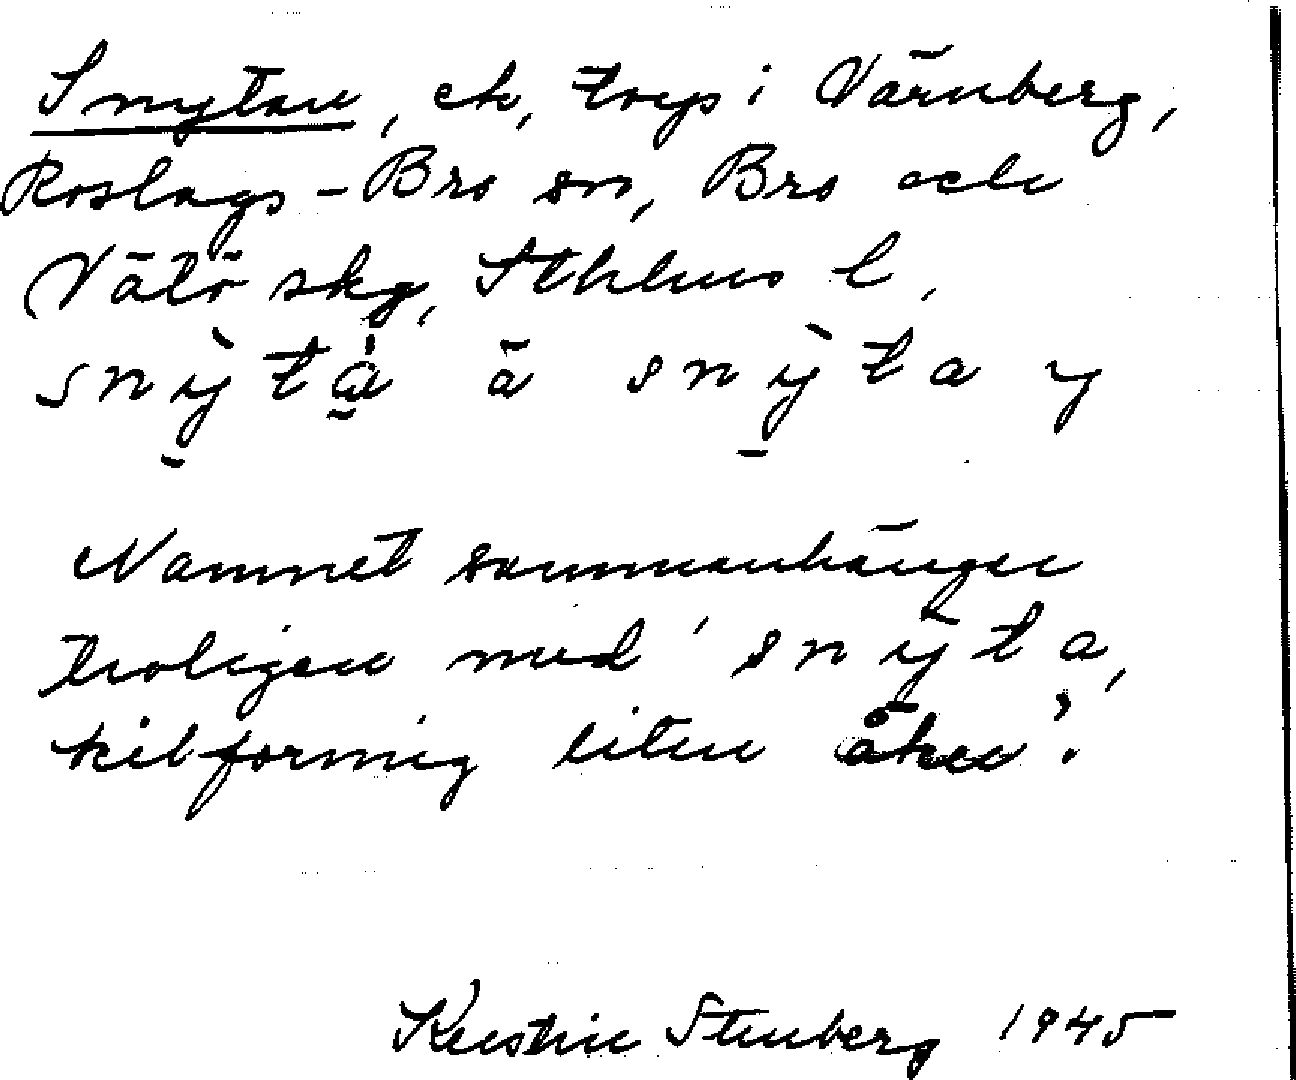 Snytan, ek, torp i Värnberg,
Roslags-Bro sn, Bro och
Vätö skg, Sthlms l,
snỳta̱̍ ä snỳta y
Namnet sammanhänger
troligen med ' snȳta,
kilformig liten åker'.
Kerstin Stenberg 1945